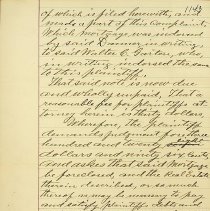 1147
of which is filed herewith, and
made a part of this Complaint,
Which mortgage was endorsed
by said Brawner in writing
to said Walter C. Carter, who,
in writing endorsed the same
to this plaintiff.
That said note is now due
and wholly unpaid. That a
reasonable fee for plaintiffs at-
torney herein is thirty dollars
Wherefore, the Plaintiff
demands judgment for three
hundred and twenty eight
dollars and ninty six cents
and asks that said mortgage
be foreclosed, and the Real Estate
therein described, or so much
there of as may be necessary to pay
and satisfy plaintiffs debts and